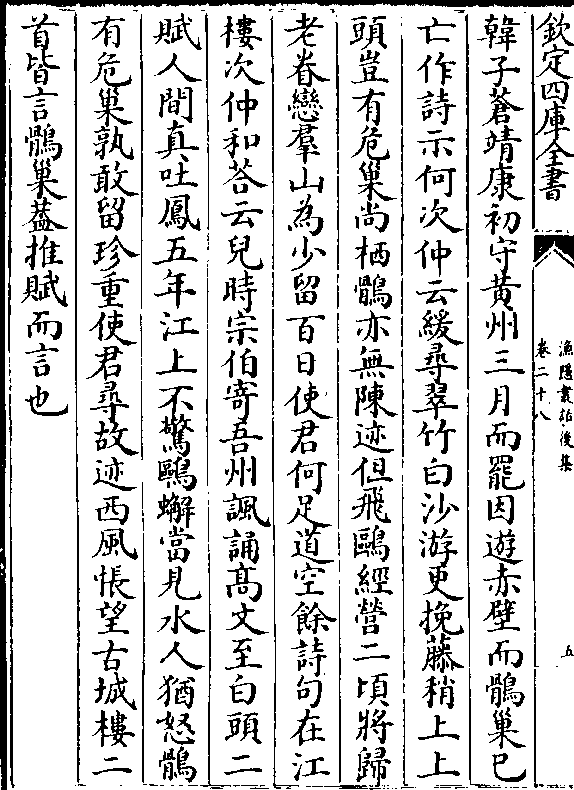 欽定四庫全書
漁隱叢話後集
卷二十八
五
韓子蒼靖康初守黄州三月而罷因遊赤壁而鶻巢已
亡作詩示何次仲云緩尋翠竹白沙游更挽藤稍上上
頭豈有危巢尚栖鶻亦無陳迹但飛鷗經營二頃將歸
老眷戀羣山為少留百日使君何足道空餘詩句在江
樓次仲和荅云兒時宗伯寄吾州諷誦髙文至白頭二
賦人間真吐鳳五年江上不驚鷗蠏當見水人猶怒鶻
有危巢孰敢留珍重使君尋故迹西風悵望古城樓二
首皆言鶻巢葢推賦而言也